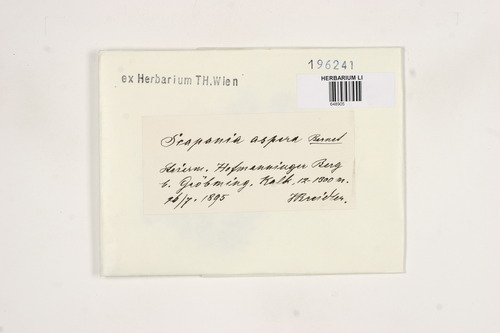 196241
ex Herbarium TH.Wien
HERBARIUM LI
Scapania aspera Bernet
Steierm. Hofmanninger Berg
b. Gröbming, Kalk, 12-1300 m.
26/7. 1895